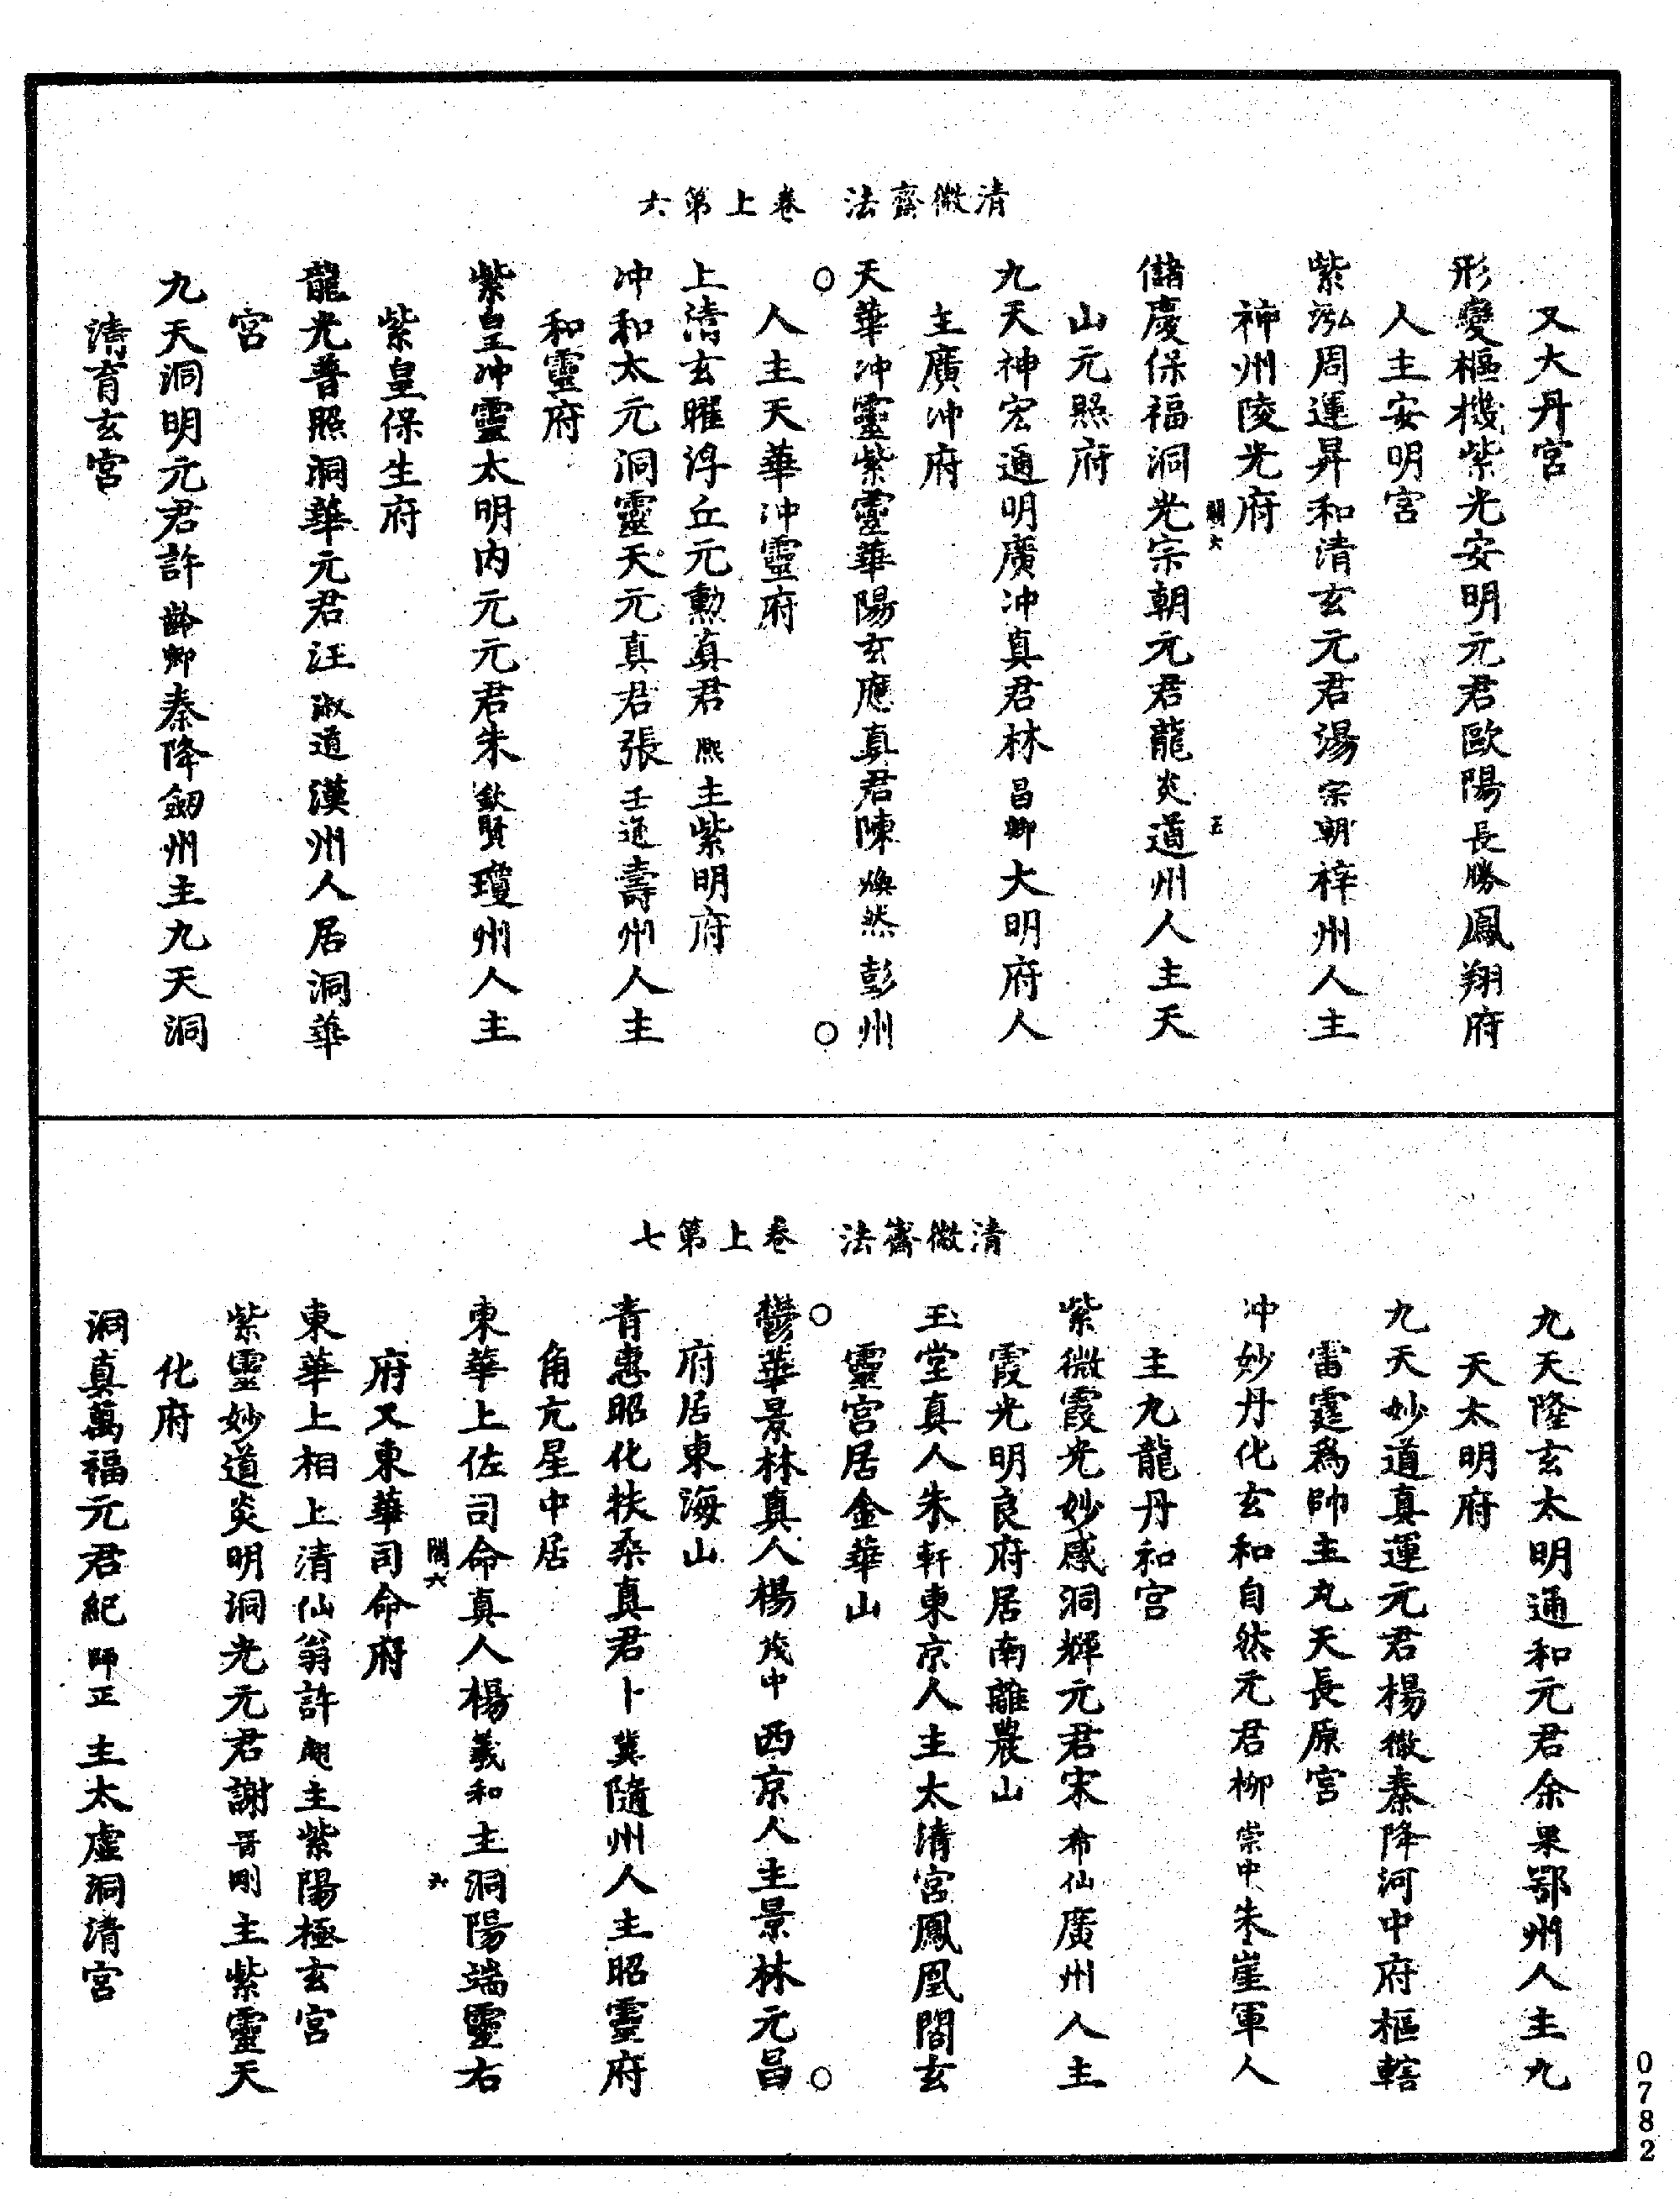 清微齋法　卷上第六
又大丹宮
形變樞機紫光安明元君歐陽長勝鳳翔府
人主安明宮
紫泓周運昇和清玄元君湯宗朝梓州人主
神州陵光府
儲慶保福洞光宗朝元君龍炎道州人主天
山元照府
九天神宏通明廣冲真君林昌卿大明府人
主廣冲府
天華冲靈紫靈華陽玄應真君陳煥然彭州
人主天華冲靈府
上清玄曜浮丘元勳真君熙主紫明府
冲和太元洞靈天元真君張壬逐壽州人主
和靈府
紫皇冲靈太明内元元君朱欽賢瓊州人主
紫皇保生府
龍光普照洞華元君汪淑道漢州人居洞華
宮
九天洞明元君許齡卿秦降劒州主九天洞
清育玄宮
清微齋法　卷上第七
九天隆玄太明通和元君余果鄂州人主九
天太明府
九天妙道真運元君楊徽秦降河中府樞轄
雷霆爲帥主丸天長原宮
冲妙丹化玄和自然元君柳崇中朱崖軍人
主九龍丹和宮
紫微霞光妙感洞輝元君宋布仙廣州人主
霞光明良府居南離農山
玉堂真人朱軒東京人主太清宮鳳凰閣玄
靈宮居金華山
鬱華景林真人楊茂中西京人主景林元昌
府居東海山
青惠昭化扶桑真君卜冀隨州人主昭靈府
角亢星中居
東華上佐司命真人楊羲和主洞陽端靈右
府又東華司命府
東華上相上清仙翁許翽主紫陽極玄宮
紫靈妙道炎明洞光元君謝晋剛主紫靈天
化府
洞真萬福元君紀師正主太虚洞清宮
0782